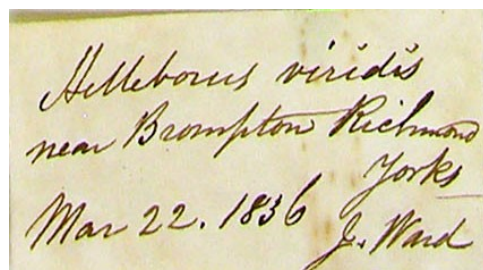 Helleborus viridis
near Brompton Richmond
Yorks
Mar 22. 1836
J. Ward